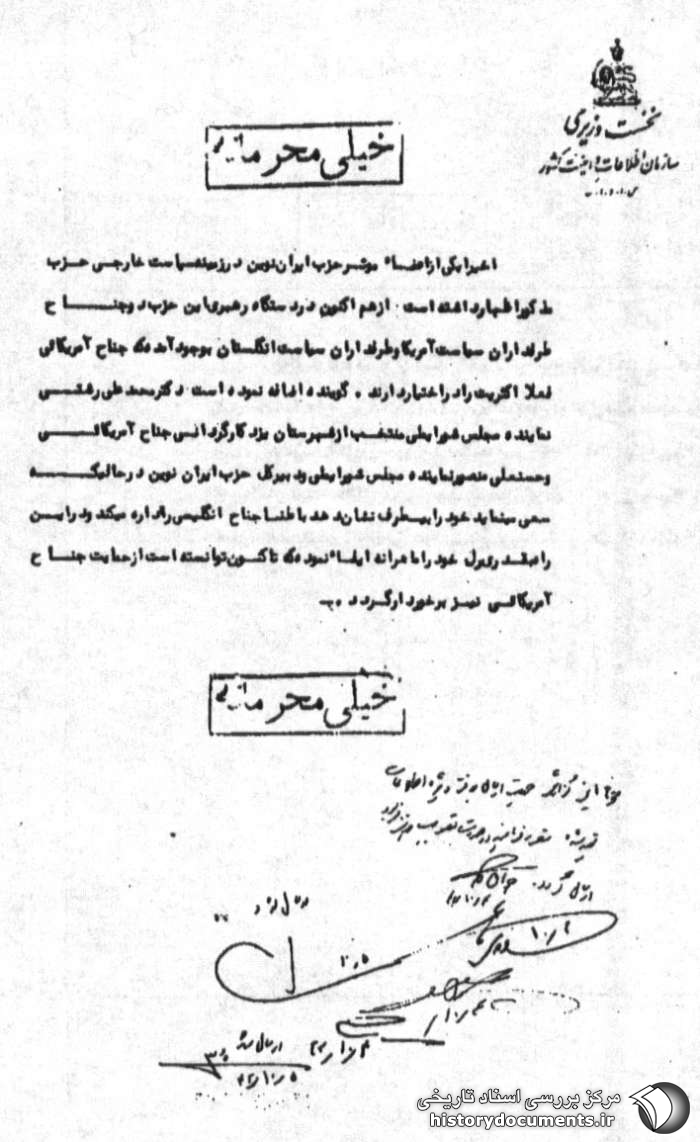 نخست وزیری
سازمان اطلاعات و امنیت کشور
س.ا.و.ا.ک
خیلی محرمانه
اخیرا یکی از اعضاء موثر حزب ایران نوین در زمینه سیاست خارجی حزب
مذکور اظهار داشته است . از هم اکنون در دستگاه رهبری این حزب دو جناح
طرفداران سیاست آمریکا و طرفداران سیاست انگلستان بوجود آمده که جناح آمریکائی
فعلا اکثریت را در اختیار دارند . گوینده اضافه نموده است دکتر محمد علی رشتی
نماینده مجلس شورایملی منتخب از شهرستان یزد کارگردانی جناح آمریکائی
و حسنعلی منصور نماینده مجلس شورایملی و دبیرکل حزب ایران نوین در حالیکه
سعی مینماید خود را بیطرف نشان دهد باطنا جناح انگلیس را اداره میکند و در این
راه بقدری رل خود را ماهرانه ایفاء نموده که تاکنون توانسته است از حمایت جناح
آمریکائی نیز برخوردار گردد .
خیلی محرمانه
ارسال گردد.
ارسال شد
مرکز بررسی اسناد تاریخی
historydocuments.ir